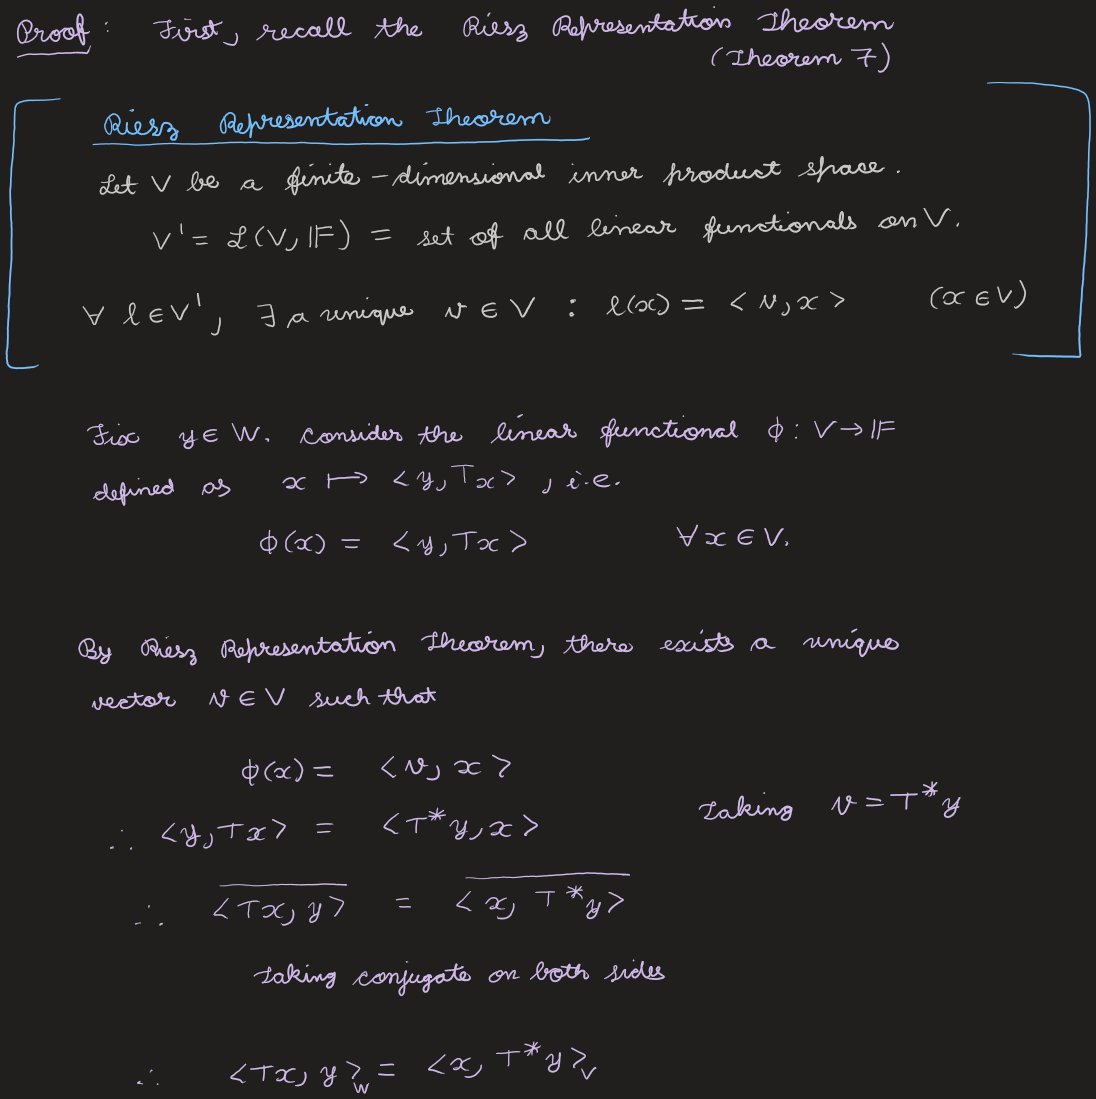 Proof: First, recall the Riesz Representation Theorem
(Theorem 7)
Riesz Representation Theorem
Let V be a finite-dimensional inner product space.
V' = ℒ(V, 𝔽) = set of all linear functionals on V.
∀ l ∈ V', ∃ a unique v ∈ V : l(x) = <v, x> (x ∈ V)
Fix y ∈ W. Consider the linear functional ϕ: V → 𝔽
defined as x ↦ <y, Tx>, i.e.
ϕ(x) = <y, Tx> ∀ x ∈ V.
By Riesz Representation Theorem, there exists a unique
vector v ∈ V such that
ϕ(x) = <v, x>
∴ <y, Tx> = <T*y, x> Taking v = T*y
∴ \overline{<Tx, y>} = \overline{<x, T*y>}
Taking conjugate on both sides
∴ <Tx, y>_W = <x, T*y>_V